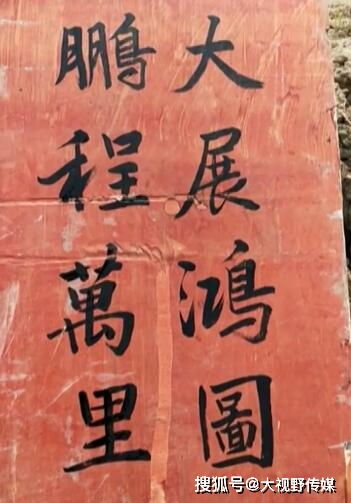 大展鴻圖
鵬程萬里
搜狐号@大视野传媒